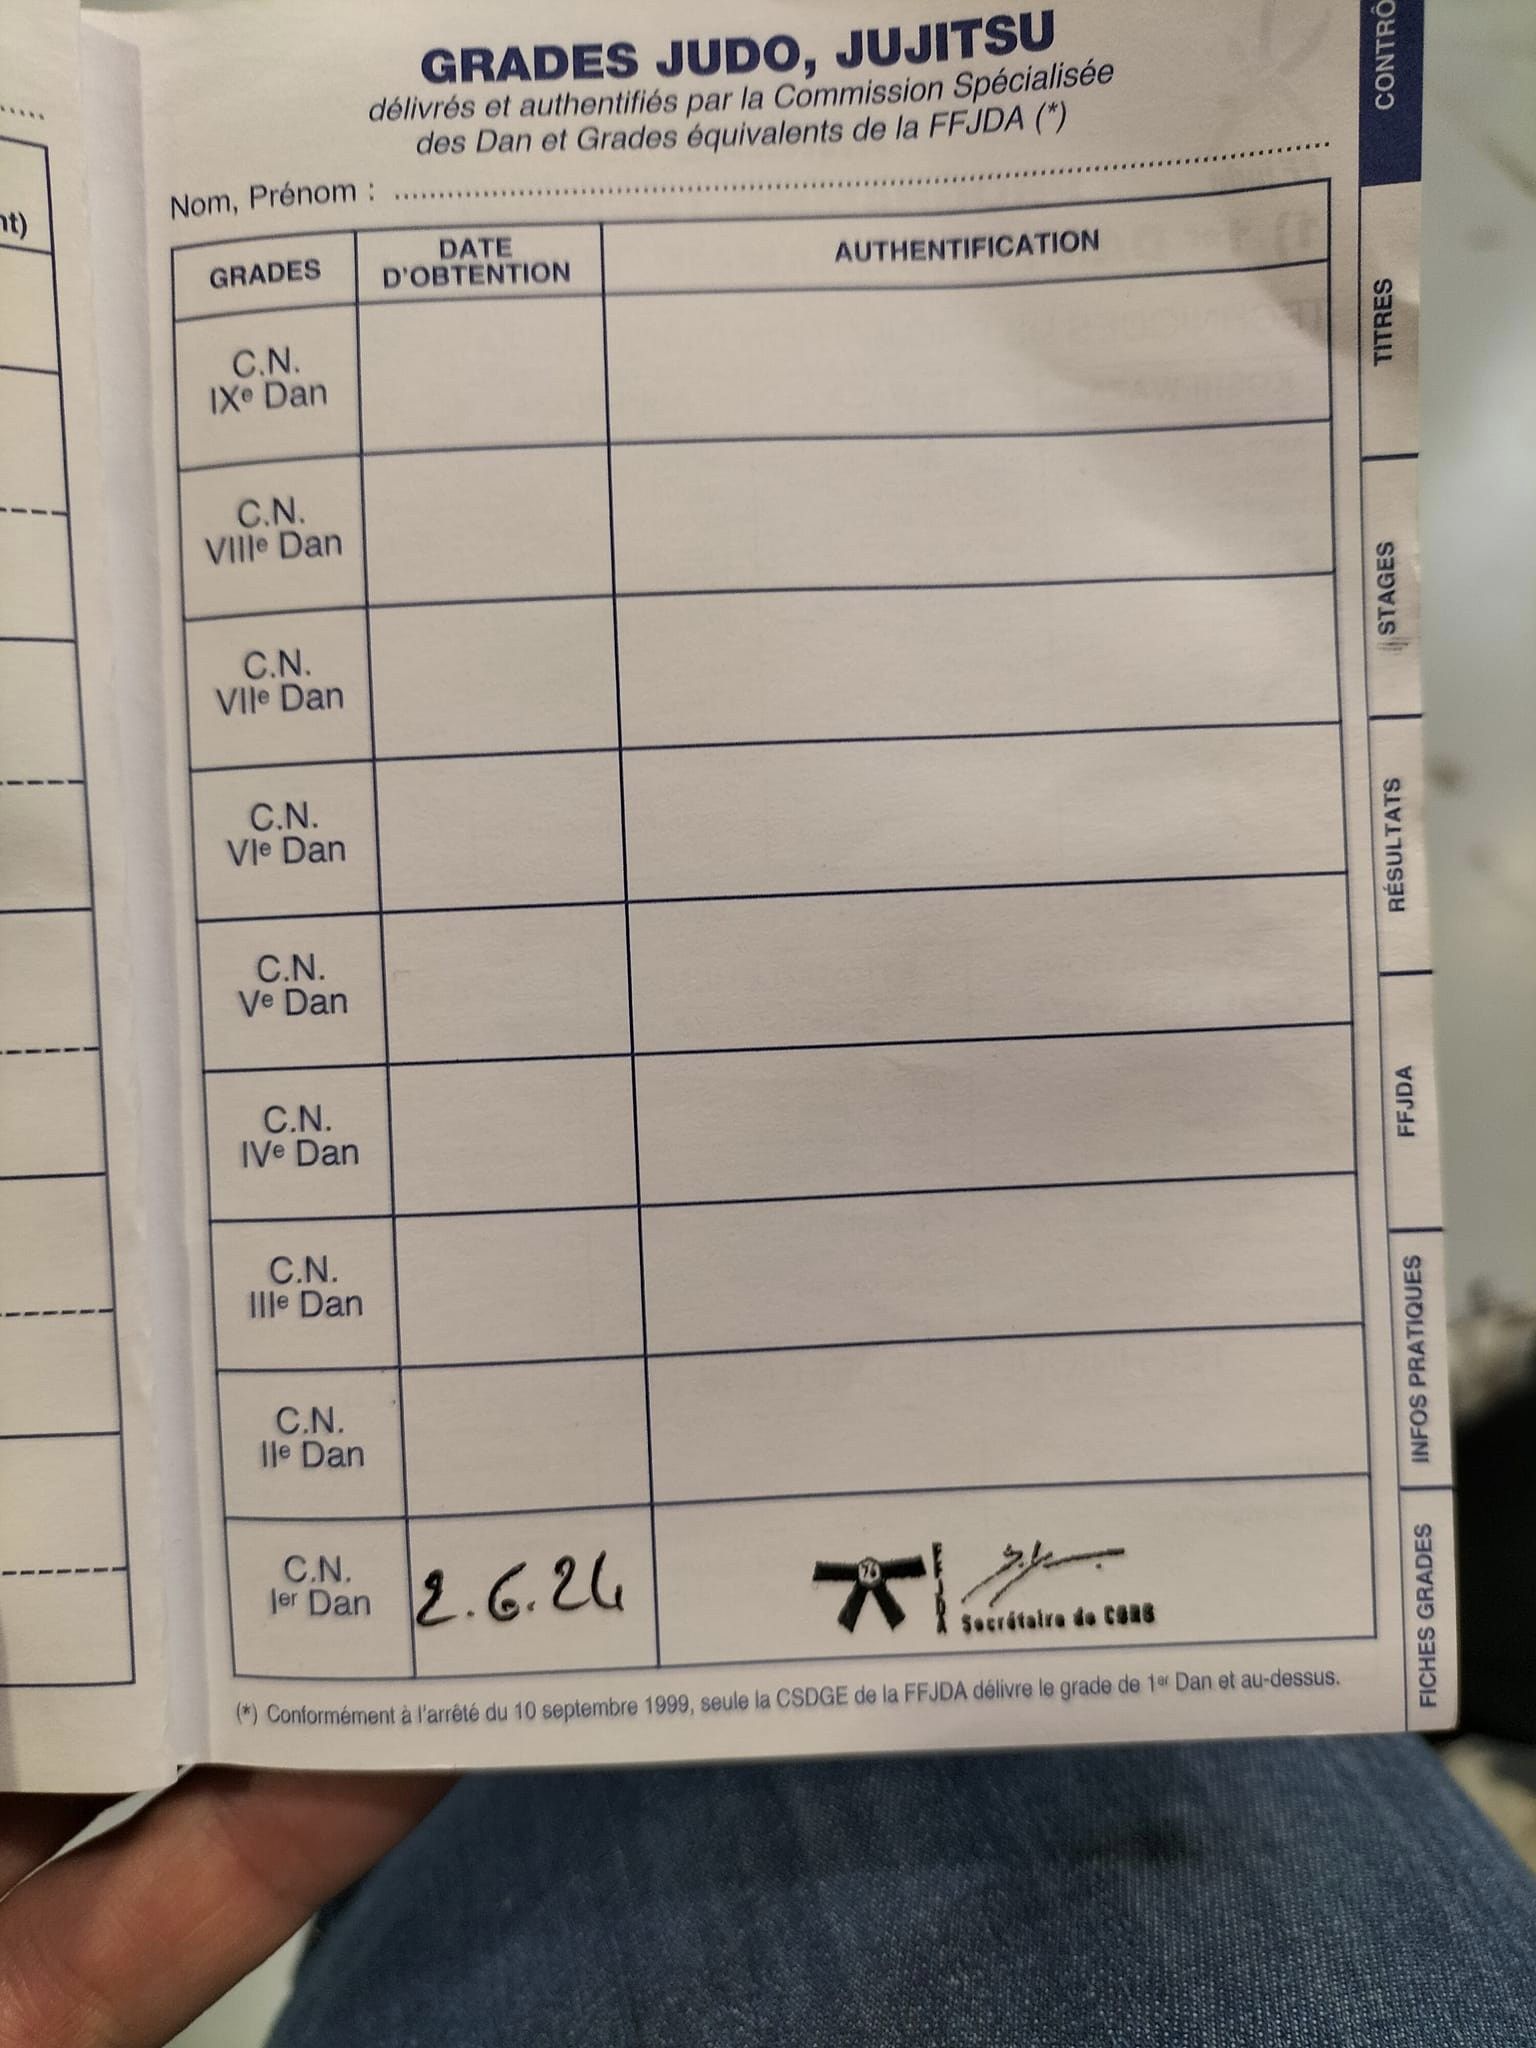 GRADES JUDO, JUJITSU
délivrés et authentifiés par la Commission Spécialisée
des Dan et Grades équivalents de la FFJDA (*)
Nom, Prénom :
GRADES
DATE D'OBTENTION
AUTHENTIFICATION
C.N.
IXe Dan
C.N.
VIIIe Dan
C.N.
VIIe Dan
C.N.
VIe Dan
C.N.
Ve Dan
C.N.
IVe Dan
C.N.
IIIe Dan
C.N.
IIe Dan
C.N.
Ier Dan
2.6.24
76
FFJDA
Secrétaire de CORG
(*) Conformément à l'arrêté du 10 septembre 1999, seule la CSDGE de la FFJDA délivre le grade de 1er Dan et au-dessus.
CONTRÔ
TITRES
STAGES
RÉSULTATS
FFJDA
INFOS PRATIQUES
FICHES GRADES
nt)